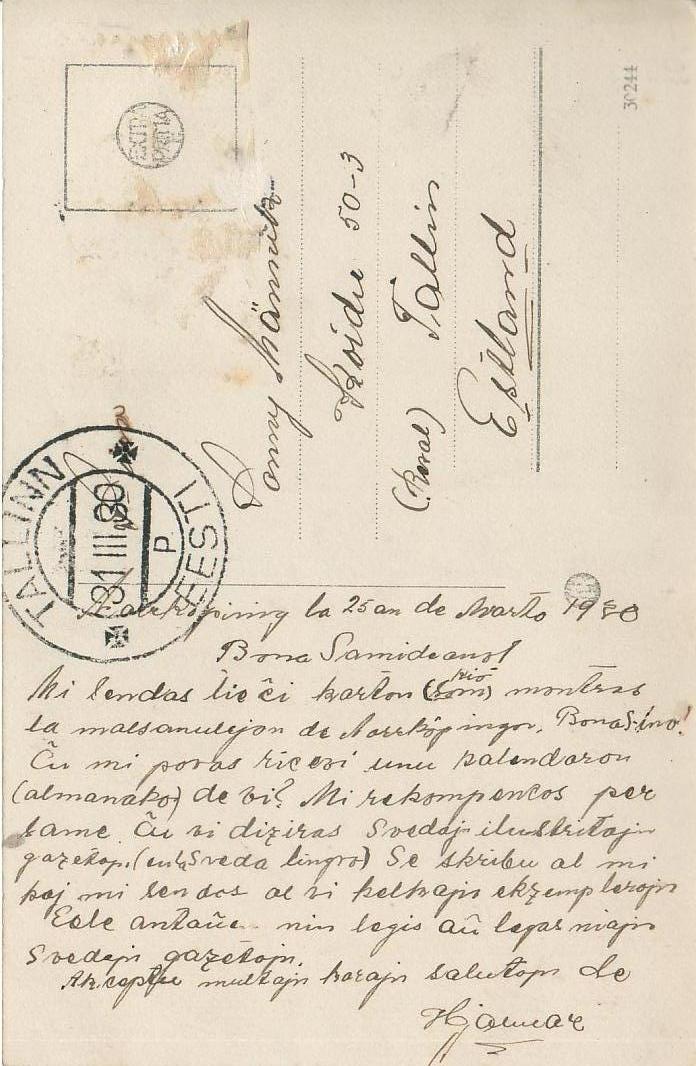 30244
EXTRA PRIMA
Männik
Koidu 50-3
(Reval) Tallin
Estland
TALLINN EESTI
31 III 30
P
Norrköping la 25an de Marto 1930
Bona Samideano!
Mi sendas tie ĉi karton (kio) montras
la malsanulejon de Norrköping. Bona Sino!
Ĉu mi povas ricevi unu kalendaron
(almanako) de vi? Mi rekompencos per
same. Ĉu vi diziras Svedajn ilustritajn
gazetojn. (en la Sveda lingvo) Se skribu al mi
kaj mi sendos al vi kelkajn ekzemplerojn
Esle antaŭe nin legis aŭ legas niajn
Svedajn gazetojn.
Akceptu multajn korajn salutojn de
Hjalmar